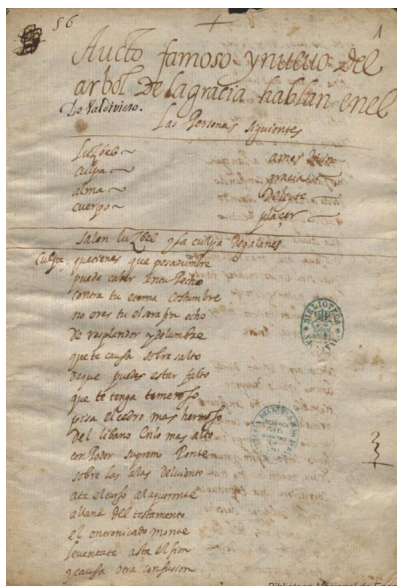 56
1
Aucto famoso y nueuo del
arbol De la gracia hablan en el
De Valdiuieso.
Las Personas siguientes
Luzbel amor Diuino
culpa gracia
alma Deleyte
cuerpo plaçer
Salen luzbel y la culpa De galanes
Culpa. que tienes que pesadumbre
puede caber en tu Pecho
contra tu eterna costumbre
no eres tu el
de resplandor y de lumbre
que te causa sobre salto
De que puedes estar falto
que te tenga temeroso
pisa el cedro mas hermoso
Del libano en lo mas alto
con Poder supremo Ponte
sobre las alas del viento
ata el curso
del testamento
el encronicado monte
leuantate asta el sion
y causa otra confusion
BIBLIOTECA